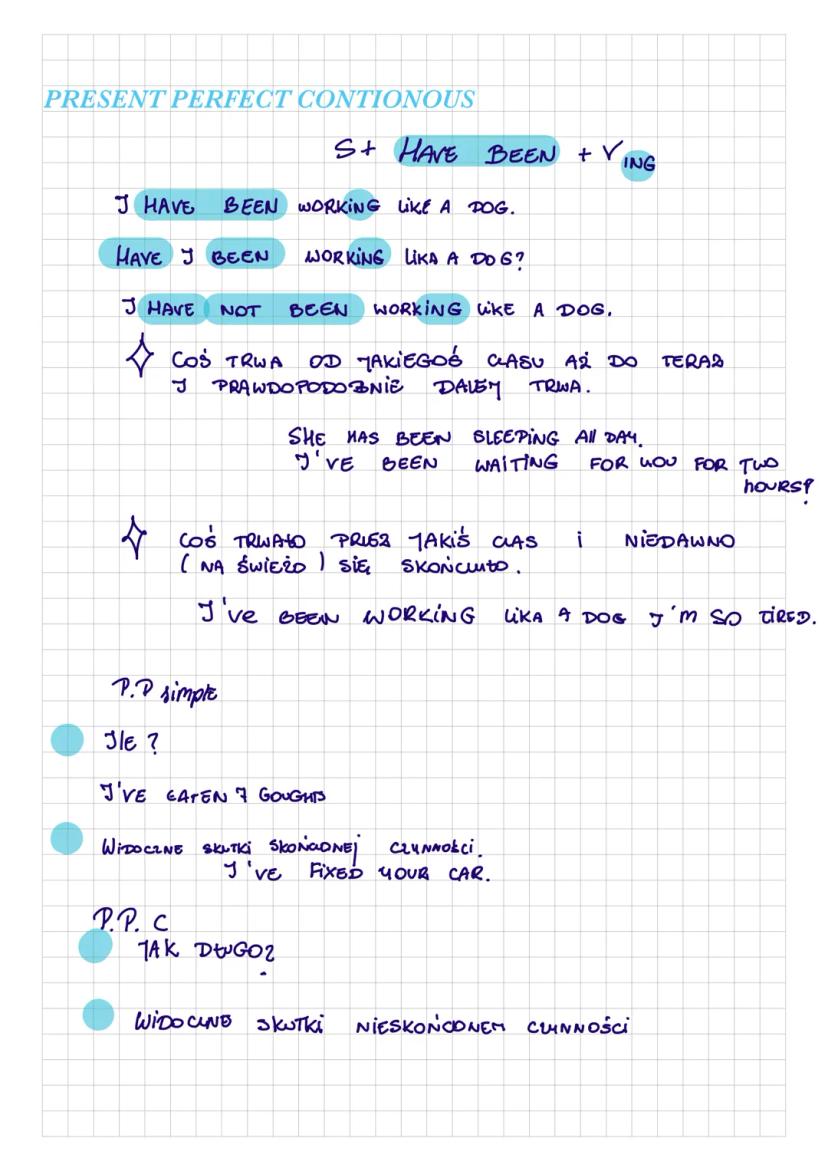 PRESENT PERFECT CONTIONOUS
S+ HAVE BEEN + VING
I HAVE BEEN WORKING LIKE A DOG.
HAVE I BEEN WORKING LIKA A DOG?
I HAVE NOT BEEN WORKING LIKE A DOG.
COŚ TRWA OD JAKIEGOŚ CZASU AŻ DO TERAZ
I PRAWDOPODOBNIE DALEJ TRWA.
SHE HAS BEEN SLEEPING All DAY.
I'VE BEEN WAITING FOR YOU FOR TWO
HOURS!
COŚ TRWAŁO PRZEZ JAKIŚ CZAS i NIEDAWNO
(NA ŚWIEŻO) SIĘ SKOŃCZYŁO.
I've BEEN WORKING LIKA A DOG I'M SO TIRED.
P.P simple
Ile?
I'VE EATEN 7
WIDOCZNE SKUTKI SKOŃCZONEJ CZYNNOŚCI.
I'VE FIXED YOUR CAR.
P.P. C
JAK DŁUGO?
WIDOCZNE SKUTKI NIESKOŃCZONEJ CZYNNOŚCI